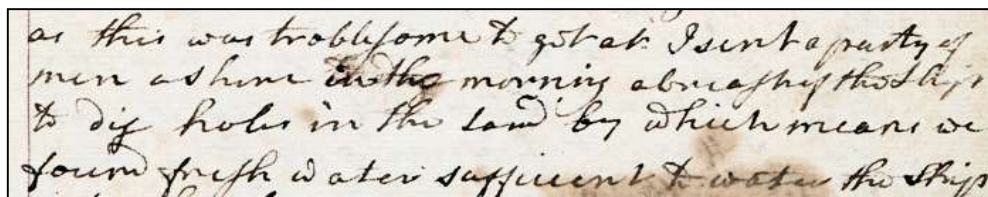 as this was troblesome to get at I sent a party of
men ashore in the morning abreast of the Ship
to dig holes in the Sand by which means we
found fresh water sufficient to water the Ship